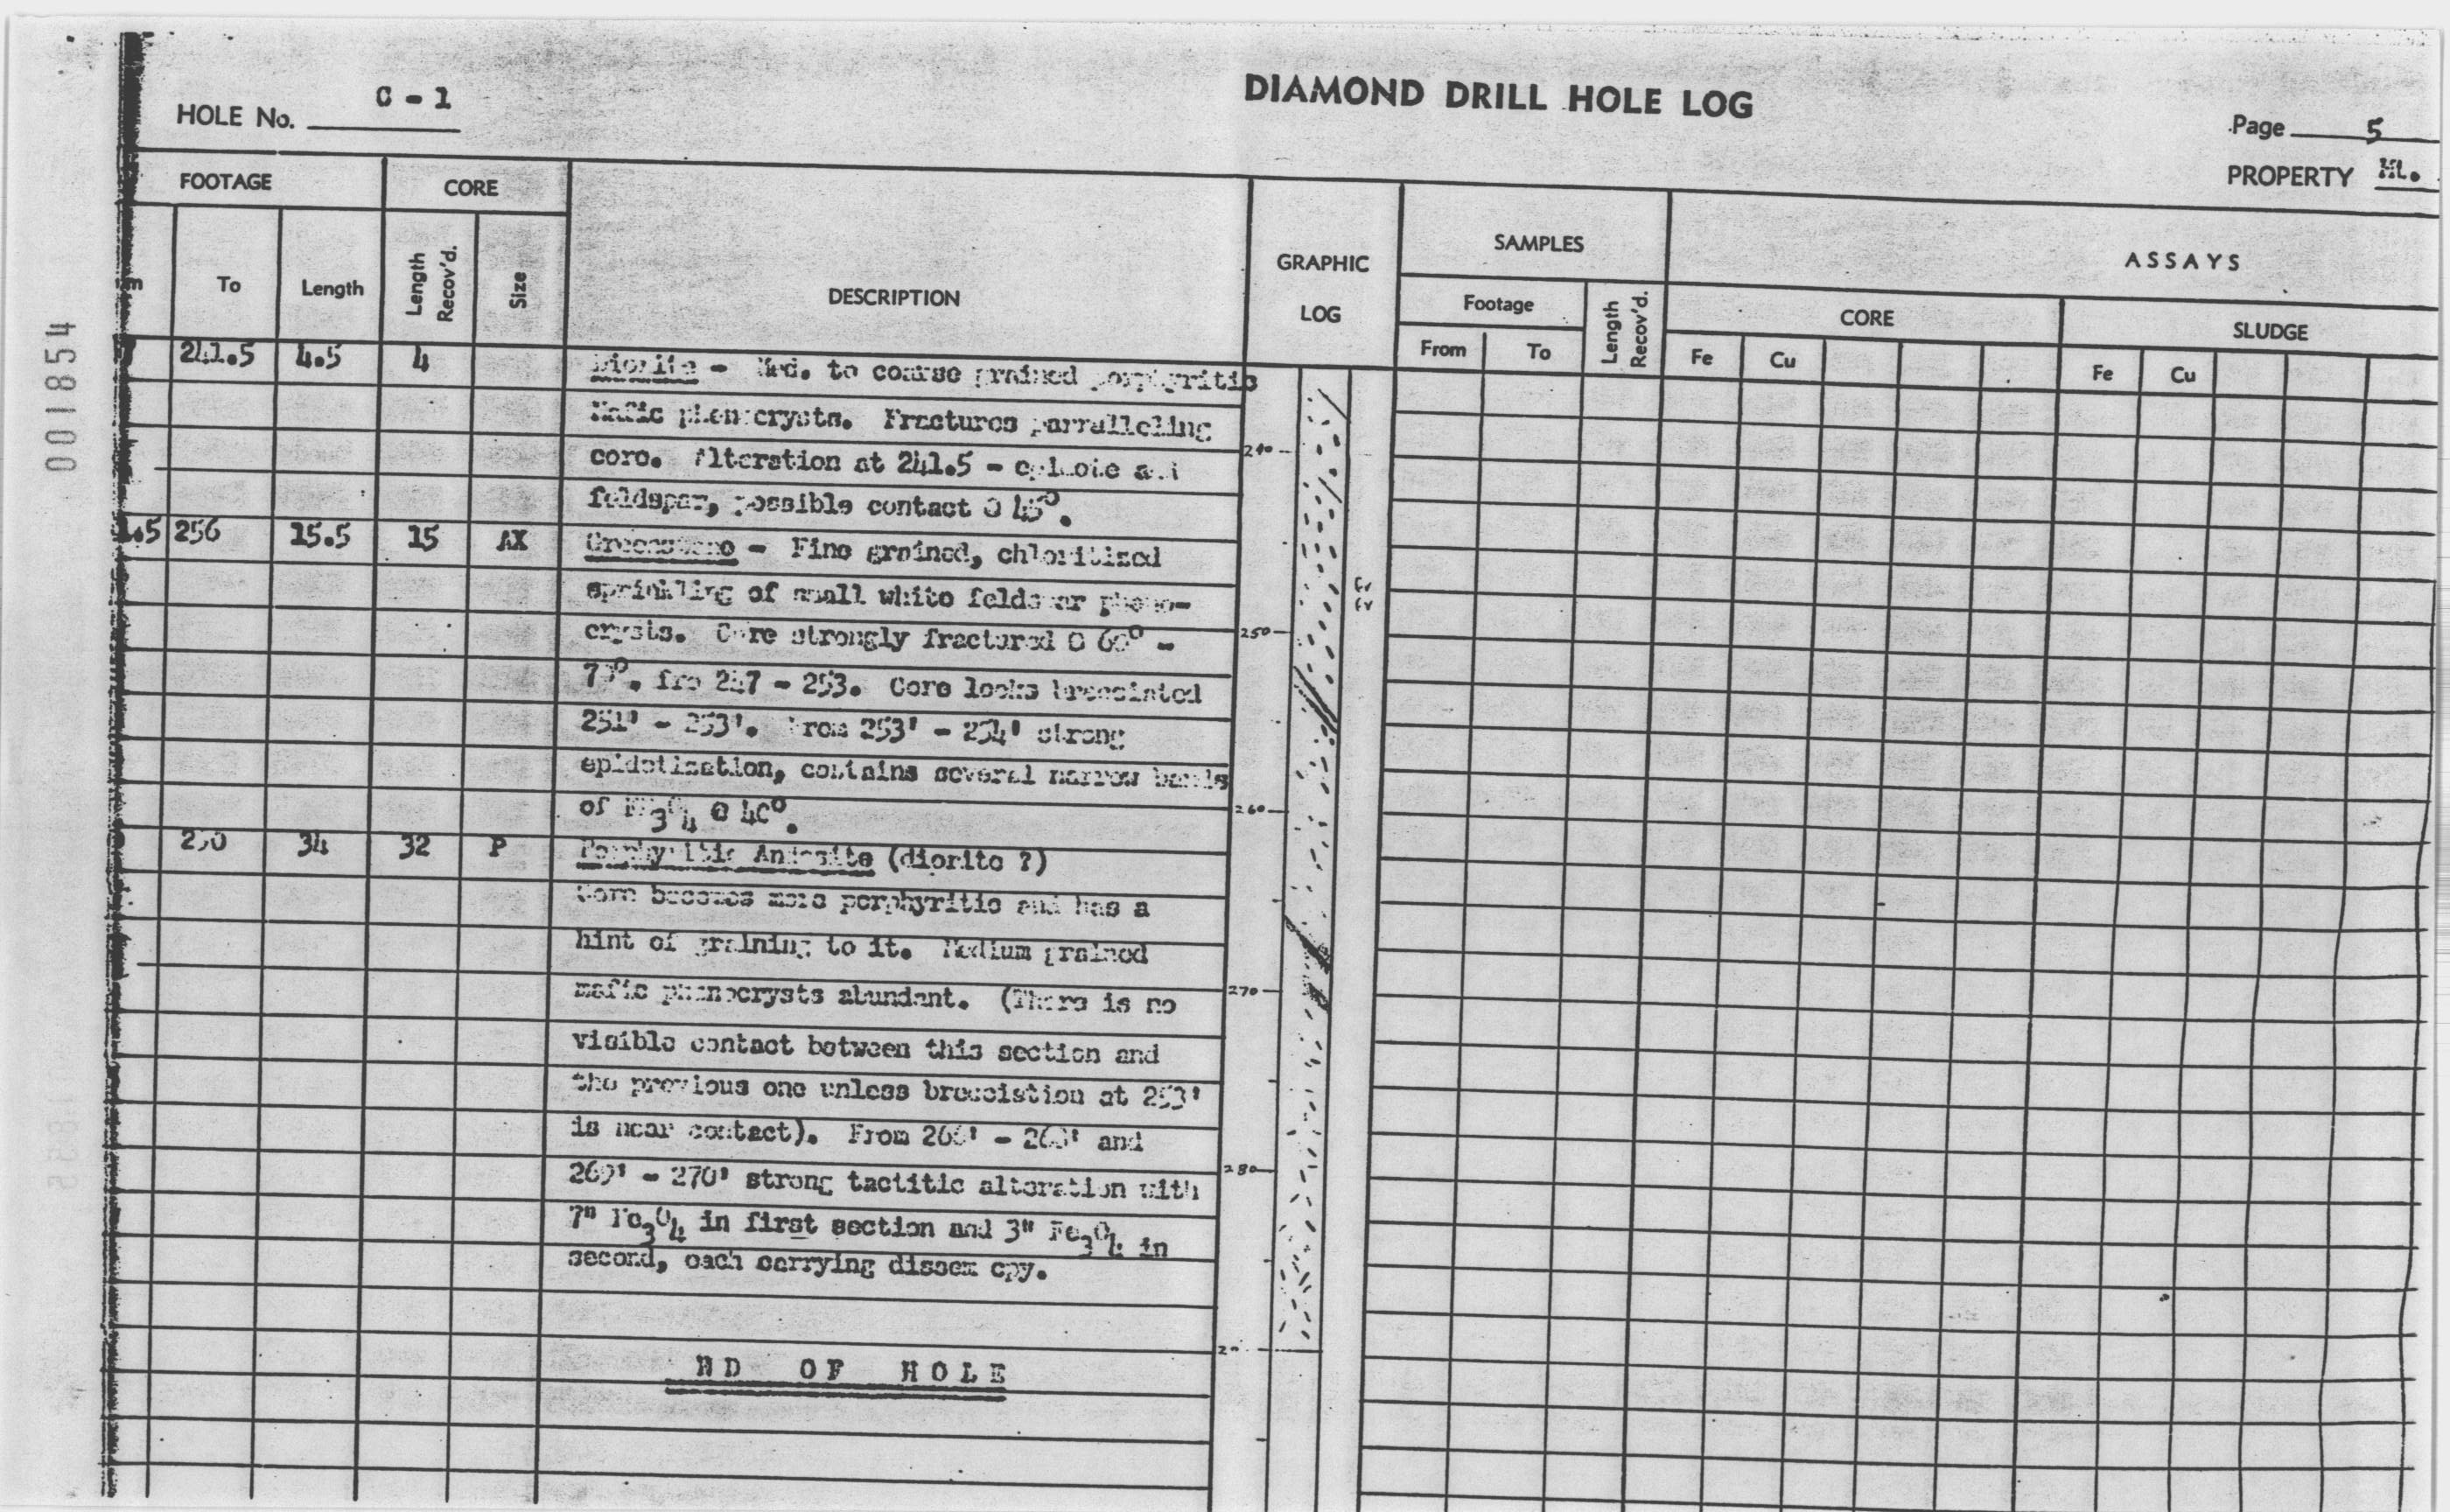 DIAMOND DRILL HOLE LOG
HOLE No. C - 1
Page 5
PROPERTY Mt.
FOOTAGE
CORE
DESCRIPTION
GRAPHIC
LOG
SAMPLES
ASSAYS
To
Length
Length
Recov'd.
Size
Footage
From
To
Length
Recov'd.
CORE
Fe
Cu
SLUDGE
Fe
Cu
001854
241.5 4.5 4 Diorite - Med. to coarse grained porphyritic
Mafic phenocrysts. Fractures parralleling
core. Alteration at 241.5 - epidote and
feldspar, possible contact @ 45°.
1.5 256 15.5 15 AX Greenstone - Fine grained, chloritized
sprinkling of small white feldspar pheno-
crysts. Core strongly fractured @ 60° -
fro 247 - 253. Core looks brecciated
251' - 253'. From 253' - 254' strong
epidotization, contains several narrow bands
of Fe3O4 @ 40°.
290 34 32 P Porphyritic Andesite (diorite ?)
Core becomes more porphyritic and has a
hint of graining to it. Medium grained
mafic phenocrysts abundant. (There is no
visible contact between this section and
the previous one unless brecciation at 253'
is near contact). From 266' - 268' and
269' - 270' strong tactitic alteration with
7" Fe3O4 in first section and 3" Fe3O4 in
second, each carrying dissem cpy.
ND OF HOLE
240
250
260
270
280